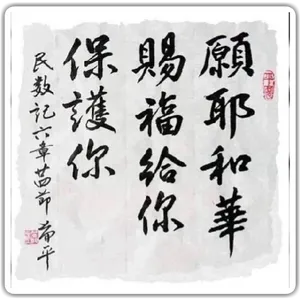 願耶和華
賜福給你
保護你
民数记六章廿四節